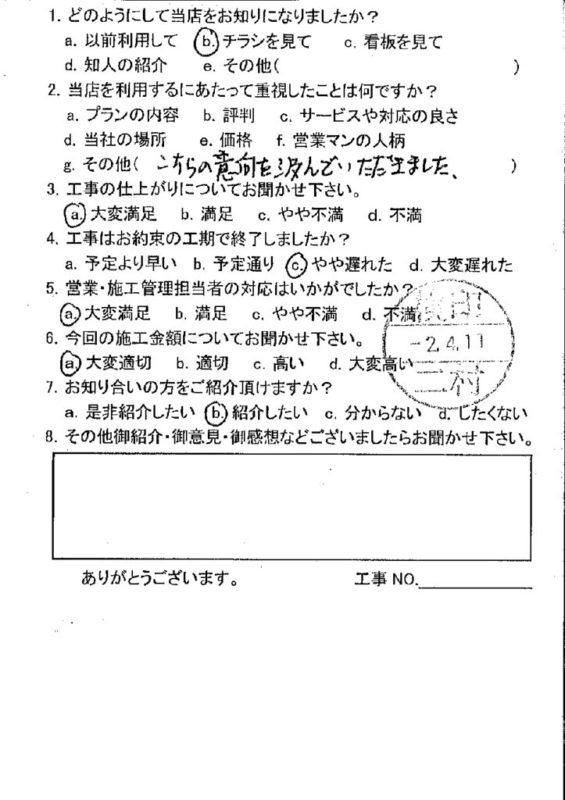 1. どのようにして当店をお知りになりましたか？
a. 以前利用して b. チラシを見て c. 看板を見て
d. 知人の紹介 e. その他( )
2. 当店を利用するにあたって重視したことは何ですか？
a. プランの内容 b. 評判 c. サービスや対応の良さ
d. 当社の場所 e. 価格 f. 営業マンの人柄
g. その他( こちらの意向を汲んでいただきました、 )
3. 工事の仕上がりについてお聞かせ下さい。
a. 大変満足 b. 満足 c. やや不満 d. 不満
4. 工事はお約束の工期で終了しましたか？
a. 予定より早い b. 予定通り c. やや遅れた d. 大変遅れた
5. 営業・施工管理担当者の対応はいかがでしたか？
a. 大変満足 b. 満足 c. やや不満 d. 不満
6. 今回の施工金額についてお聞かせ下さい。
-2.4.11
a. 大変適切 b. 適切 c. 高い d. 大変高い
二村
7. お知り合いの方をご紹介頂けますか？
a. 是非紹介したい b. 紹介したい c. 分からない d. したくない
8. その他御紹介・御意見・御感想などございましたらお聞かせ下さい。
ありがとうございます。 工事 NO.